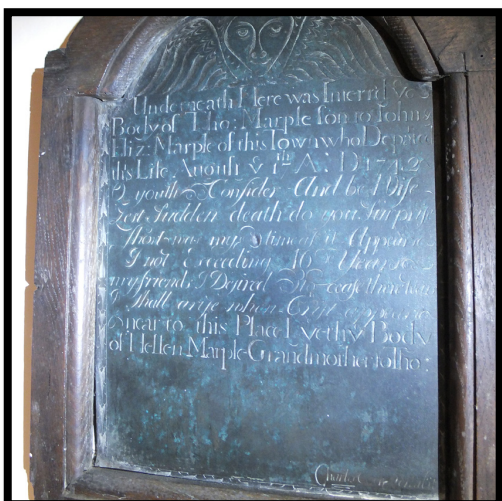 Underneath Here was Interr'd ye
Body of Tho: Marple son to John &
Eliz: Marple of this Town who Departed
this Life August ye 1th A: D 1742
O youth Consider And be Wise
Lest Sudden death do you Surprise
Short was my time as it Appears
I not Exceeding 16 Years
my friends I Desired
I shall aryse when Crist appears
near to this Place Lyeth ye Body
of Hellen Marple Grandmother to Tho:
Charles